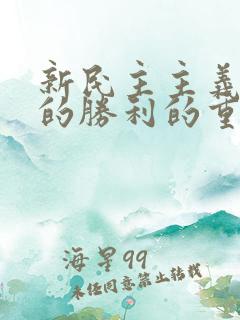 新民主主義
的勝利的重
海星99
未经同意禁止转载